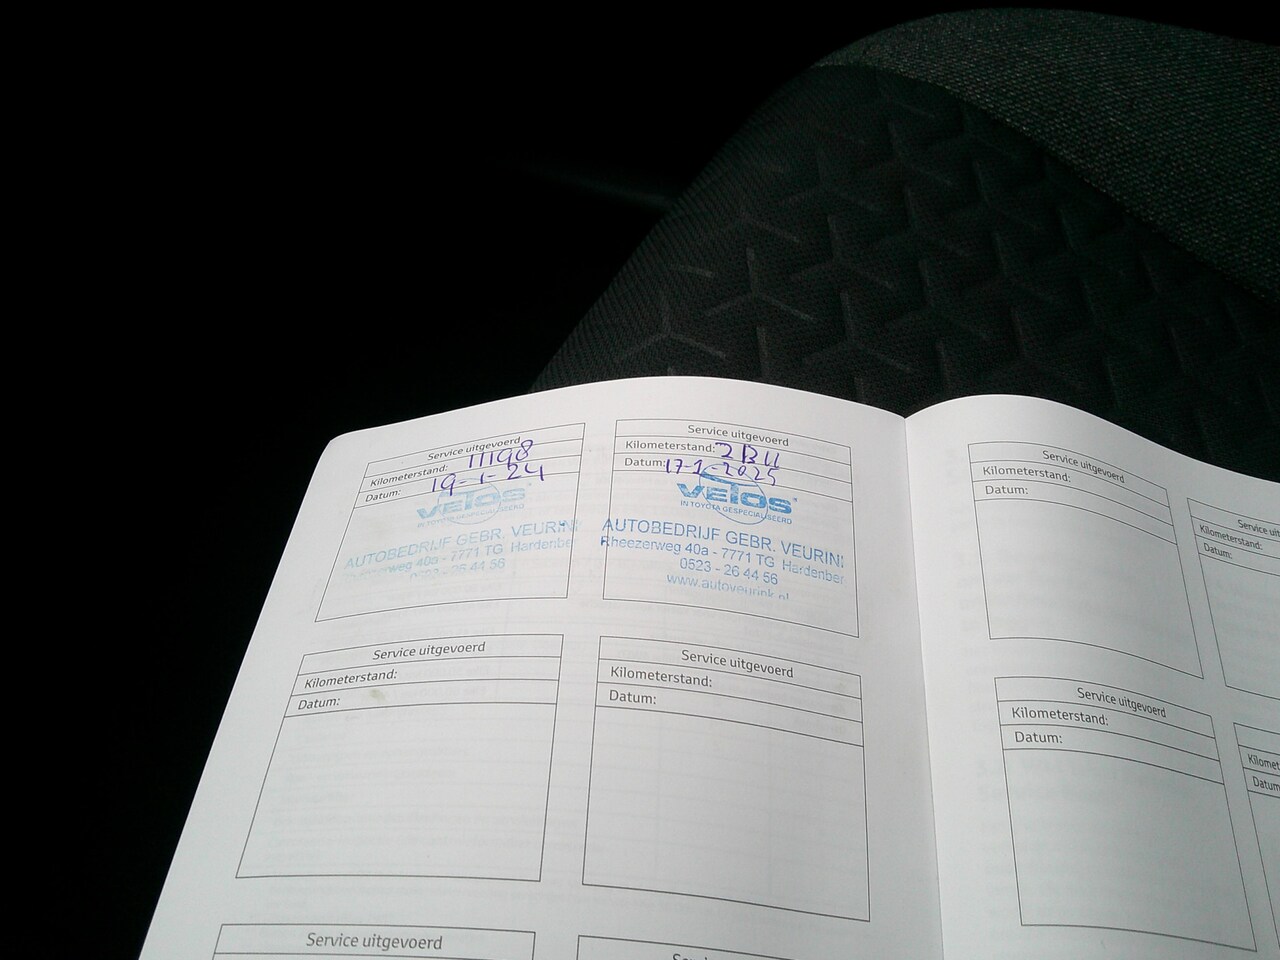 Service uitgevoerd
Kilometerstand: 11198
Datum: 19-1-24
VEIOS
IN TOYOTA GESPECIALISEERD
AUTOBEDRIJF GEBR. VEURIN
40a - 7771 TG Hardenber
0523 - 26 44 56
Service uitgevoerd
Kilometerstand:
Datum: 17-1-2025
VEIOS
IN TOYOTA GESPECIALISEERD
AUTOBEDRIJF GEBR. VEURIN
Rheezerweg 40a - 7771 TG Hardenber
0523 - 26 44 56
www.autoveurink.nl
Service uitgevoerd
Kilometerstand:
Datum:
Service uitgevoerd
Kilometerstand:
Datum:
Service uitgevoerd
Service uitgevoerd
Kilometerstand:
Datum:
Service uit
Kilometerstand:
Datum:
Service uitgevoerd
Kilometerstand:
Datum:
Kilomet
Datum